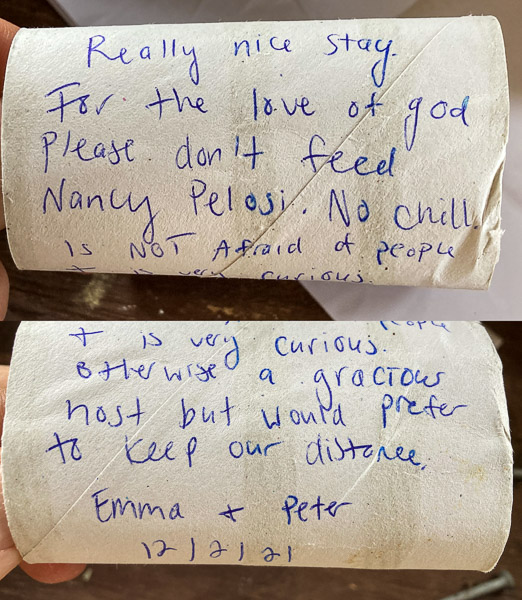 Really nice stay.
For the love of god
Please don't feed
Nancy Pelosi. No chill.
Is NOT Afraid of people
+ is very curious.
Otherwise a gracious
host but would prefer
to keep our distance.
Emma + Peter
12/2/21